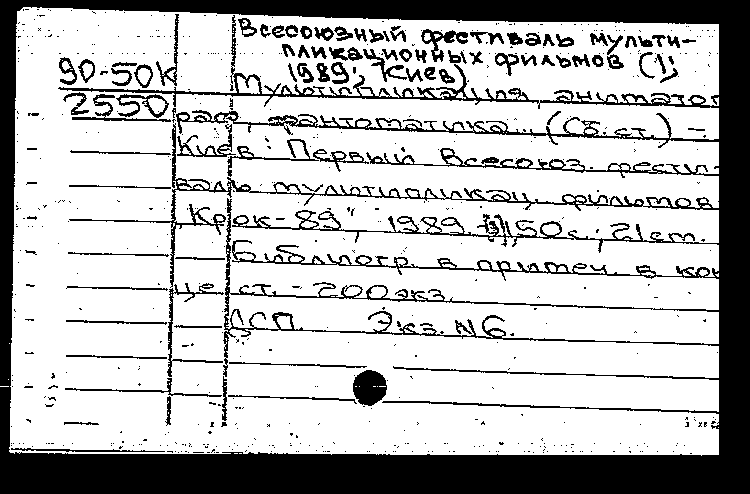 Всесоюзный фестиваль мульти-
пликационных фильмов (1;
1989; Киев)
90-50К
2550
Мультипликация, аниматог
раф, фантоматика... (Сб. ст.) –
Киев: Первый Всесоюз. фести-
валь мультипликац. фильмов
„Крок-89", 1989. 150с.; 21 см.
Библиогр. в примеч. в кон
це ст. – 200 экз.
ДСП. Экз. N6.